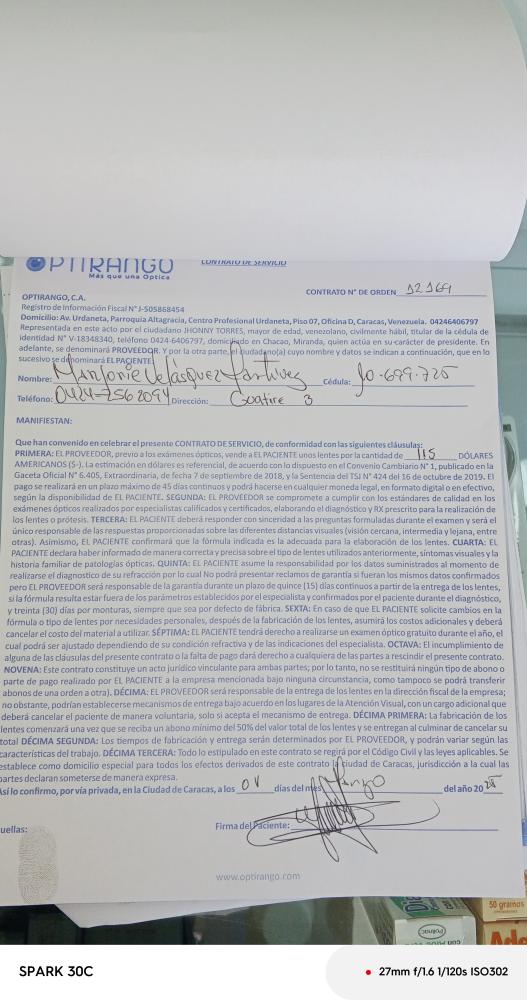 OPTIRANGO
Más que una Optica
CONTRATO DE SERVICIO
CONTRATO N° DE ORDEN 12169
OPTIRANGO, C.A.
Registro de Información Fiscal N° J-505868454
Domicilio: Av. Urdaneta, Parroquia Altagracia, Centro Profesional Urdaneta, Piso 07, Oficina D, Caracas, Venezuela. 04246406797
Representada en este acto por el ciudadano JHONNY TORRES, mayor de edad, venezolano, civilmente hábil, titular de la cédula de
identidad N° V-18348340, teléfono 0424-6406797, domiciliado en Chacao, Miranda, quien actúa en su carácter de presidente. En
adelante, se denominará PROVEEDOR. Y por la otra parte, el ciudadano(a) cuyo nombre y datos se indican a continuación, que en lo
sucesivo se denominará EL PACIENTE:
Nombre: Velásquez Cédula: 10-699-725
Teléfono: 0424-2562094 Dirección: Guatire 3
MANIFIESTAN:
Que han convenido en celebrar el presente CONTRATO DE SERVICIO, de conformidad con las siguientes cláusulas:
PRIMERA: EL PROVEEDOR, previo a los exámenes ópticos, vende a EL PACIENTE unos lentes por la cantidad de 115 DÓLARES
AMERICANOS ($-). La estimación en dólares es referencial, de acuerdo con lo dispuesto en el Convenio Cambiario N° 1, publicado en la
Gaceta Oficial N° 6.405, Extraordinaria, de fecha 7 de septiembre de 2018, y la Sentencia del TSJ N° 424 del 16 de octubre de 2019. El
pago se realizará en un plazo máximo de 45 días continuos y podrá hacerse en cualquier moneda legal, en formato digital o en efectivo,
según la disponibilidad de EL PACIENTE. SEGUNDA: EL PROVEEDOR se compromete a cumplir con los estándares de calidad en los
exámenes ópticos realizados por especialistas calificados y certificados, elaborando el diagnóstico y RX prescrito para la realización de
los lentes o prótesis. TERCERA: EL PACIENTE deberá responder con sinceridad a las preguntas formuladas durante el examen y será el
único responsable de las respuestas proporcionadas sobre las diferentes distancias visuales (visión cercana, intermedia y lejana, entre
otras). Asimismo, EL PACIENTE confirmará que la fórmula indicada es la adecuada para la elaboración de los lentes. CUARTA: EL
PACIENTE declara haber informado de manera correcta y precisa sobre el tipo de lentes utilizados anteriormente, síntomas visuales y la
historia familiar de patologías ópticas. QUINTA: EL PACIENTE asume la responsabilidad por los datos suministrados al momento de
realizarse el diagnostico de su refracción por lo cual No podrá presentar reclamos de garantía si fueran los mismos datos confirmados
pero EL PROVEEDOR será responsable de la garantía durante un plazo de quince (15) días continuos a partir de la entrega de los lentes,
si la fórmula resulta estar fuera de los parámetros establecidos por el especialista y confirmados por el paciente durante el diagnóstico,
y treinta (30) días por monturas, siempre que sea por defecto de fábrica. SEXTA: En caso de que EL PACIENTE solicite cambios en la
fórmula o tipo de lentes por necesidades personales, después de la fabricación de los lentes, asumirá los costos adicionales y deberá
cancelar el costo del material a utilizar. SÉPTIMA: EL PACIENTE tendrá derecho a realizarse un exámen óptico gratuito durante el año, el
cual podrá ser ajustado dependiendo de su condición refractiva y de las indicaciones del especialista. OCTAVA: El incumplimiento de
alguna de las cláusulas del presente contrato o la falta de pago dará derecho a cualquiera de las partes a rescindir el presente contrato.
NOVENA: Este contrato constituye un acto jurídico vinculante para ambas partes; por lo tanto, no se restituirá ningún tipo de abono o
parte de pago realizado por EL PACIENTE a la empresa mencionada bajo ninguna circunstancia, como tampoco se podrá transferir
abonos de una orden a otra). DÉCIMA: EL PROVEEDOR será responsable de la entrega de los lentes en la dirección fiscal de la empresa;
no obstante, podrían establecerse mecanismos de entrega bajo acuerdo en los lugares de la Atención Visual, con un cargo adicional que
deberá cancelar el paciente de manera voluntaria, solo si acepta el mecanismo de entrega. DÉCIMA PRIMERA: La fabricación de los
lentes comenzará una vez que se reciba un abono mínimo del 50% del valor total de los lentes y se entregan al culminar de cancelar su
total DÉCIMA SEGUNDA: Los tiempos de fabricación y entrega serán determinados por EL PROVEEDOR, y podrán variar según las
características del trabajo. DÉCIMA TERCERA: Todo lo estipulado en este contrato se regirá por el Código Civil y las leyes aplicables. Se
establece como domicilio especial para todos los efectos derivados de este contrato la ciudad de Caracas, jurisdicción a la cual las
partes declaran someterse de manera expresa.
Así lo confirmo, por vía privada, en la Ciudad de Caracas, a los 04 días del mes Marzo del año 2025
Firma del Paciente:
uellas:
www.optirango.com
50 gramos
Polinac
SPARK 30C
27mm f/1.6 1/120s ISO302